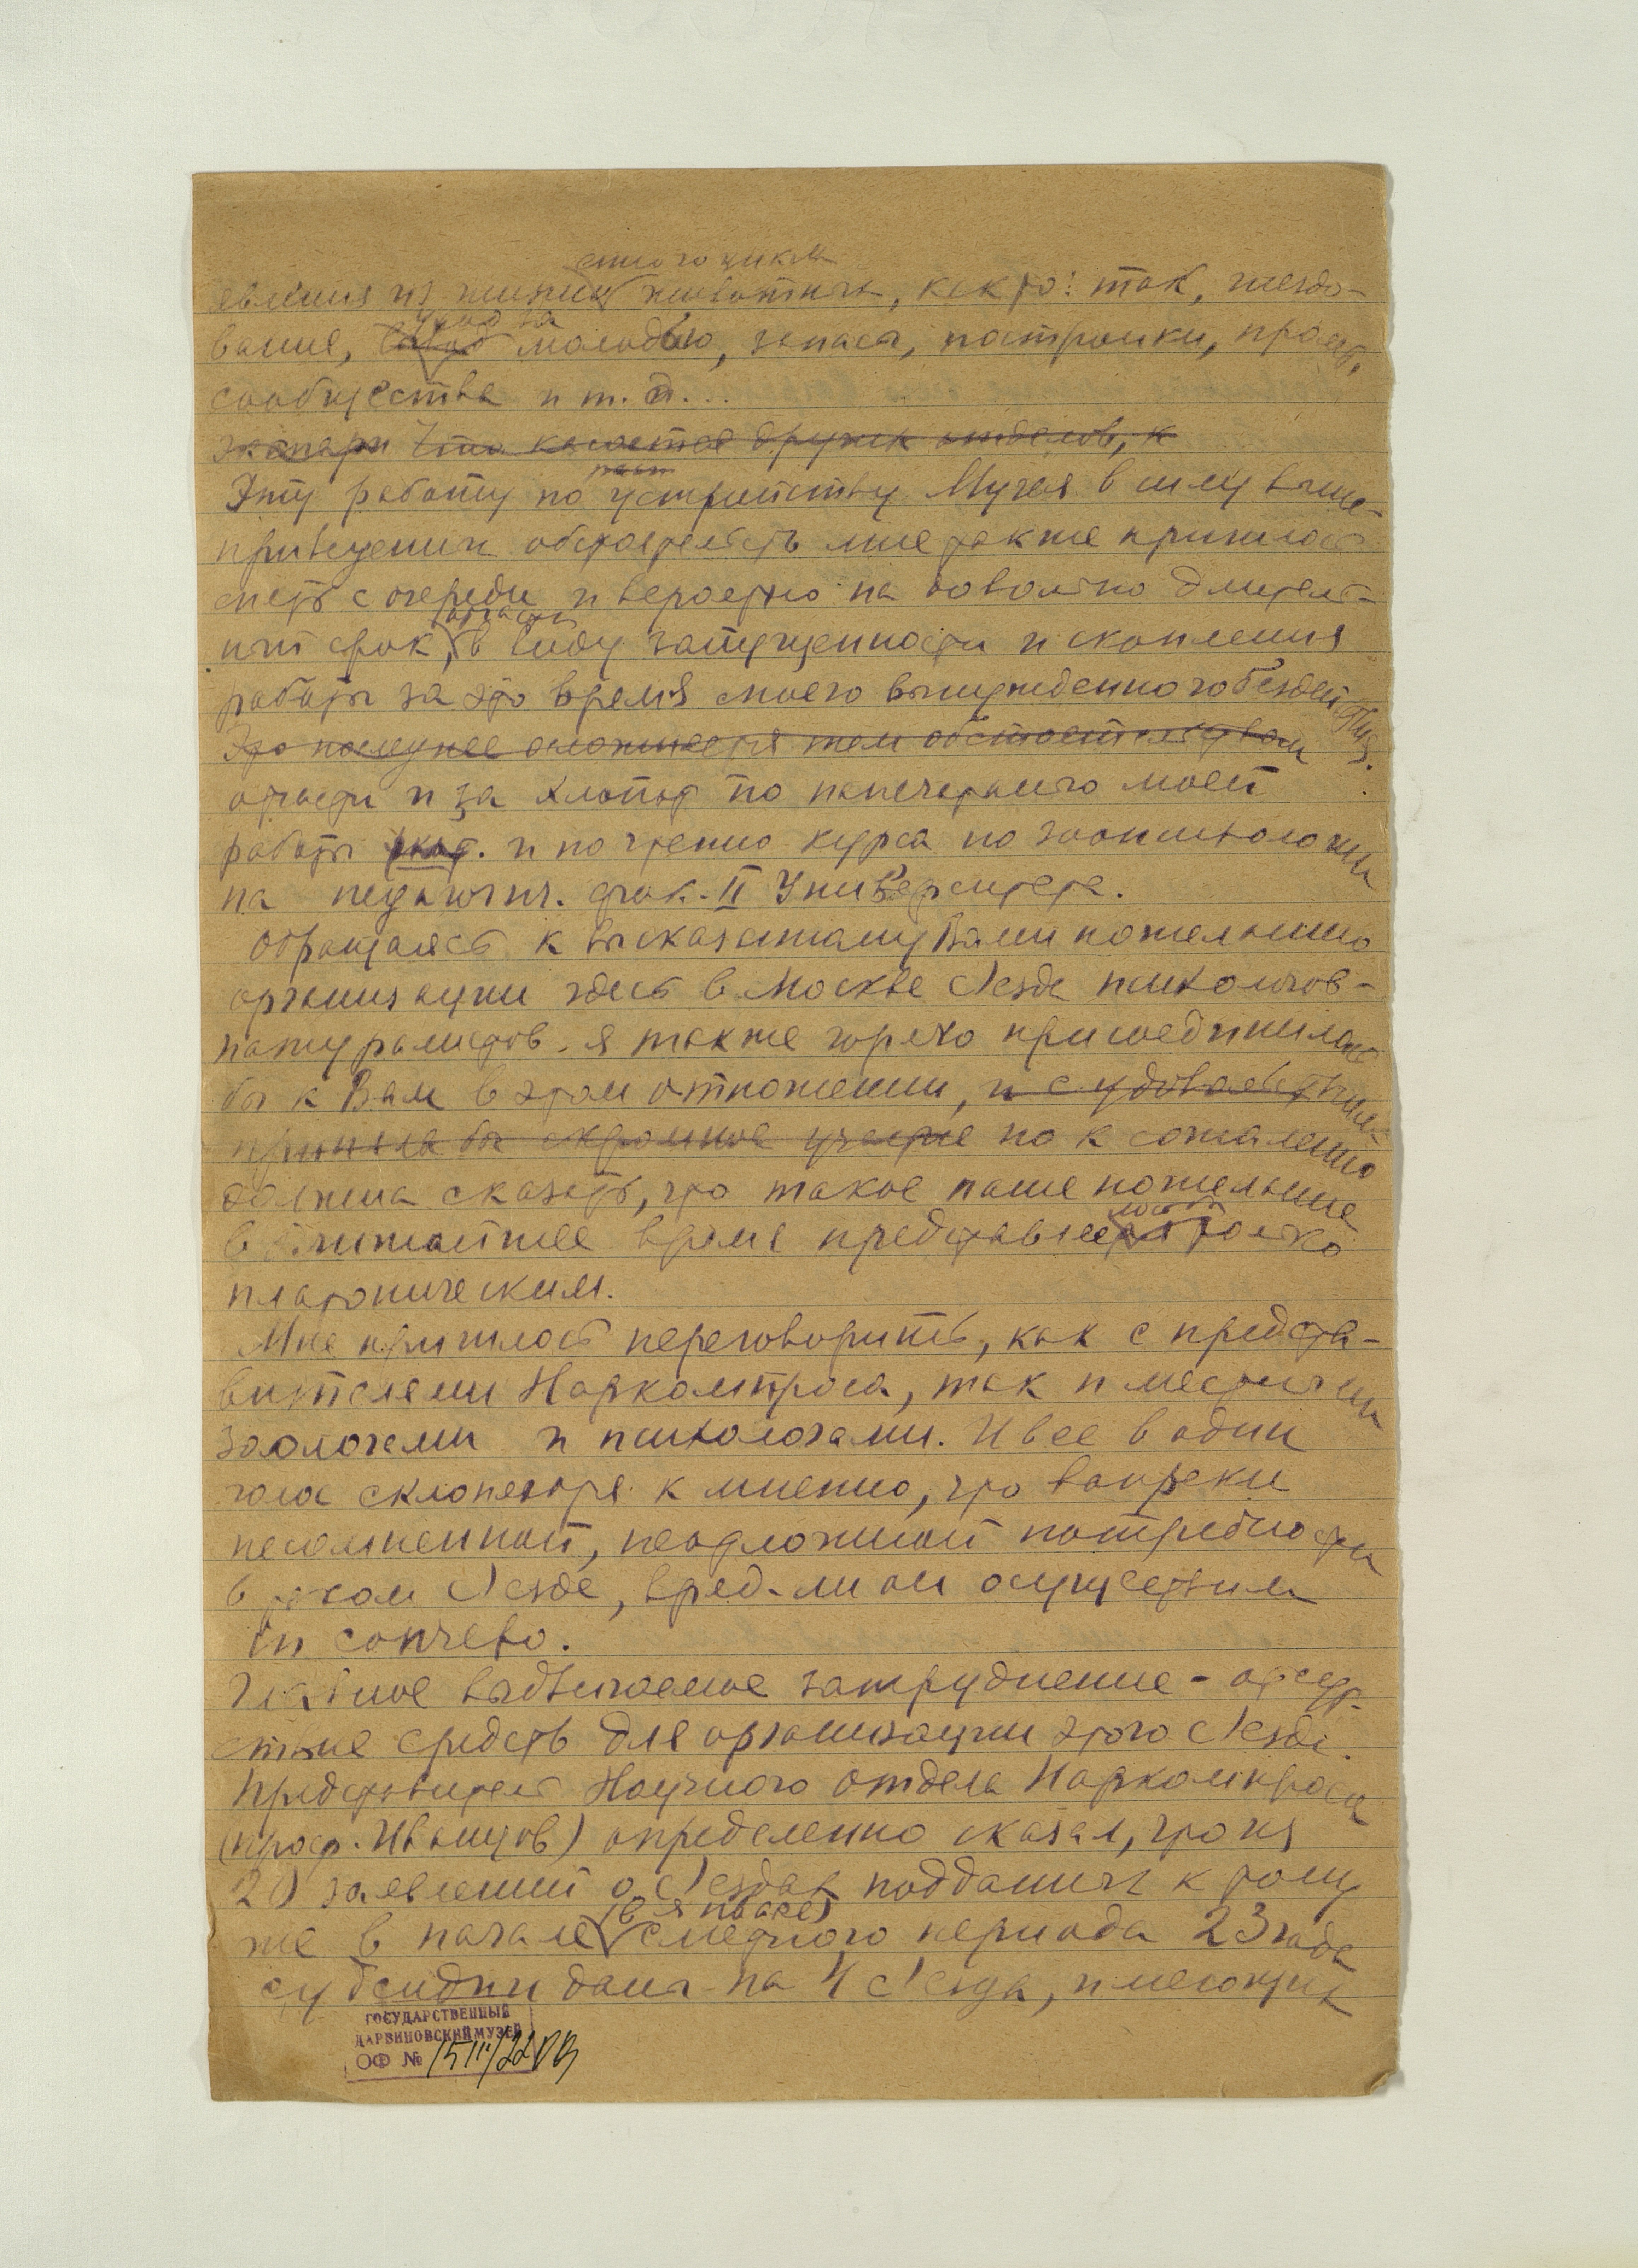 явления из жизни животных, как то: ток, гнездо-
вание, уход за молодью, запасы, постройки,
сообщества и т. д...
Что касается других отделов, к
Эту работу по устройству Музея в силу выше-
приведенных обстоятельств мне также пришлось
снять с очереди и вероятно на довольно длитель-
ный срок, отчасти в виду запущенности и скопления
работы за это время моего вынужденного бездействия.
Это последнее осложняется тем обстоятельством
отчасти из за хлопот по напечатанию моей
работы и по чтению курса по зоопсихологии
на педагогич. фак. II Университета.
Обращаясь к высказанному Вами пожеланию
организации здесь в Москве Съезда психологов-
натуралистов я также горячо присоединилась
бы к Вам в этом отношении, и с удовольствием
приняла бы скромное участие но к сожалению
должна сказать, что такое наше пожелание
в ближайшее время представляется только
платоническим.
Мне пришлось переговорить, как с предста-
вителями Наркомпроса, так и местными
зоологами и психологами. И все в один
голос склоняются к мнению, что вопреки
несомненной, неотложной потребности
в таком Съезде, вряд-ли он осуществим
in concreto.
Главное выдвигаемое затруднение - отсут-
ствие средств для организации этого Съезда.
Представитель Научного отдела Наркомпроса
(проф. Иванцов) определенно сказал, что из
20 заявлений о Съездах поданных к тому
же в начале (в январе) сметного периода 23 года
субсидии даны на 4 Съезда, имеющих
ГОСУДАРСТВЕННЫЙ
ДАРВИНОВСКИЙ МУЗЕЙ
ОФ №